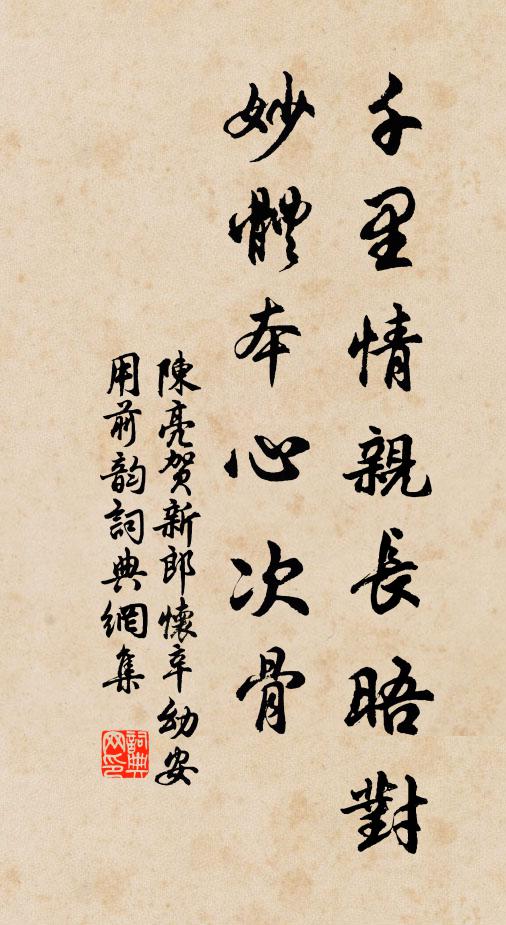 千里情親長晤對
妙體本心次骨
陳亮賀新郎懷辛幼安
用前韵詞典網集
詞典网印